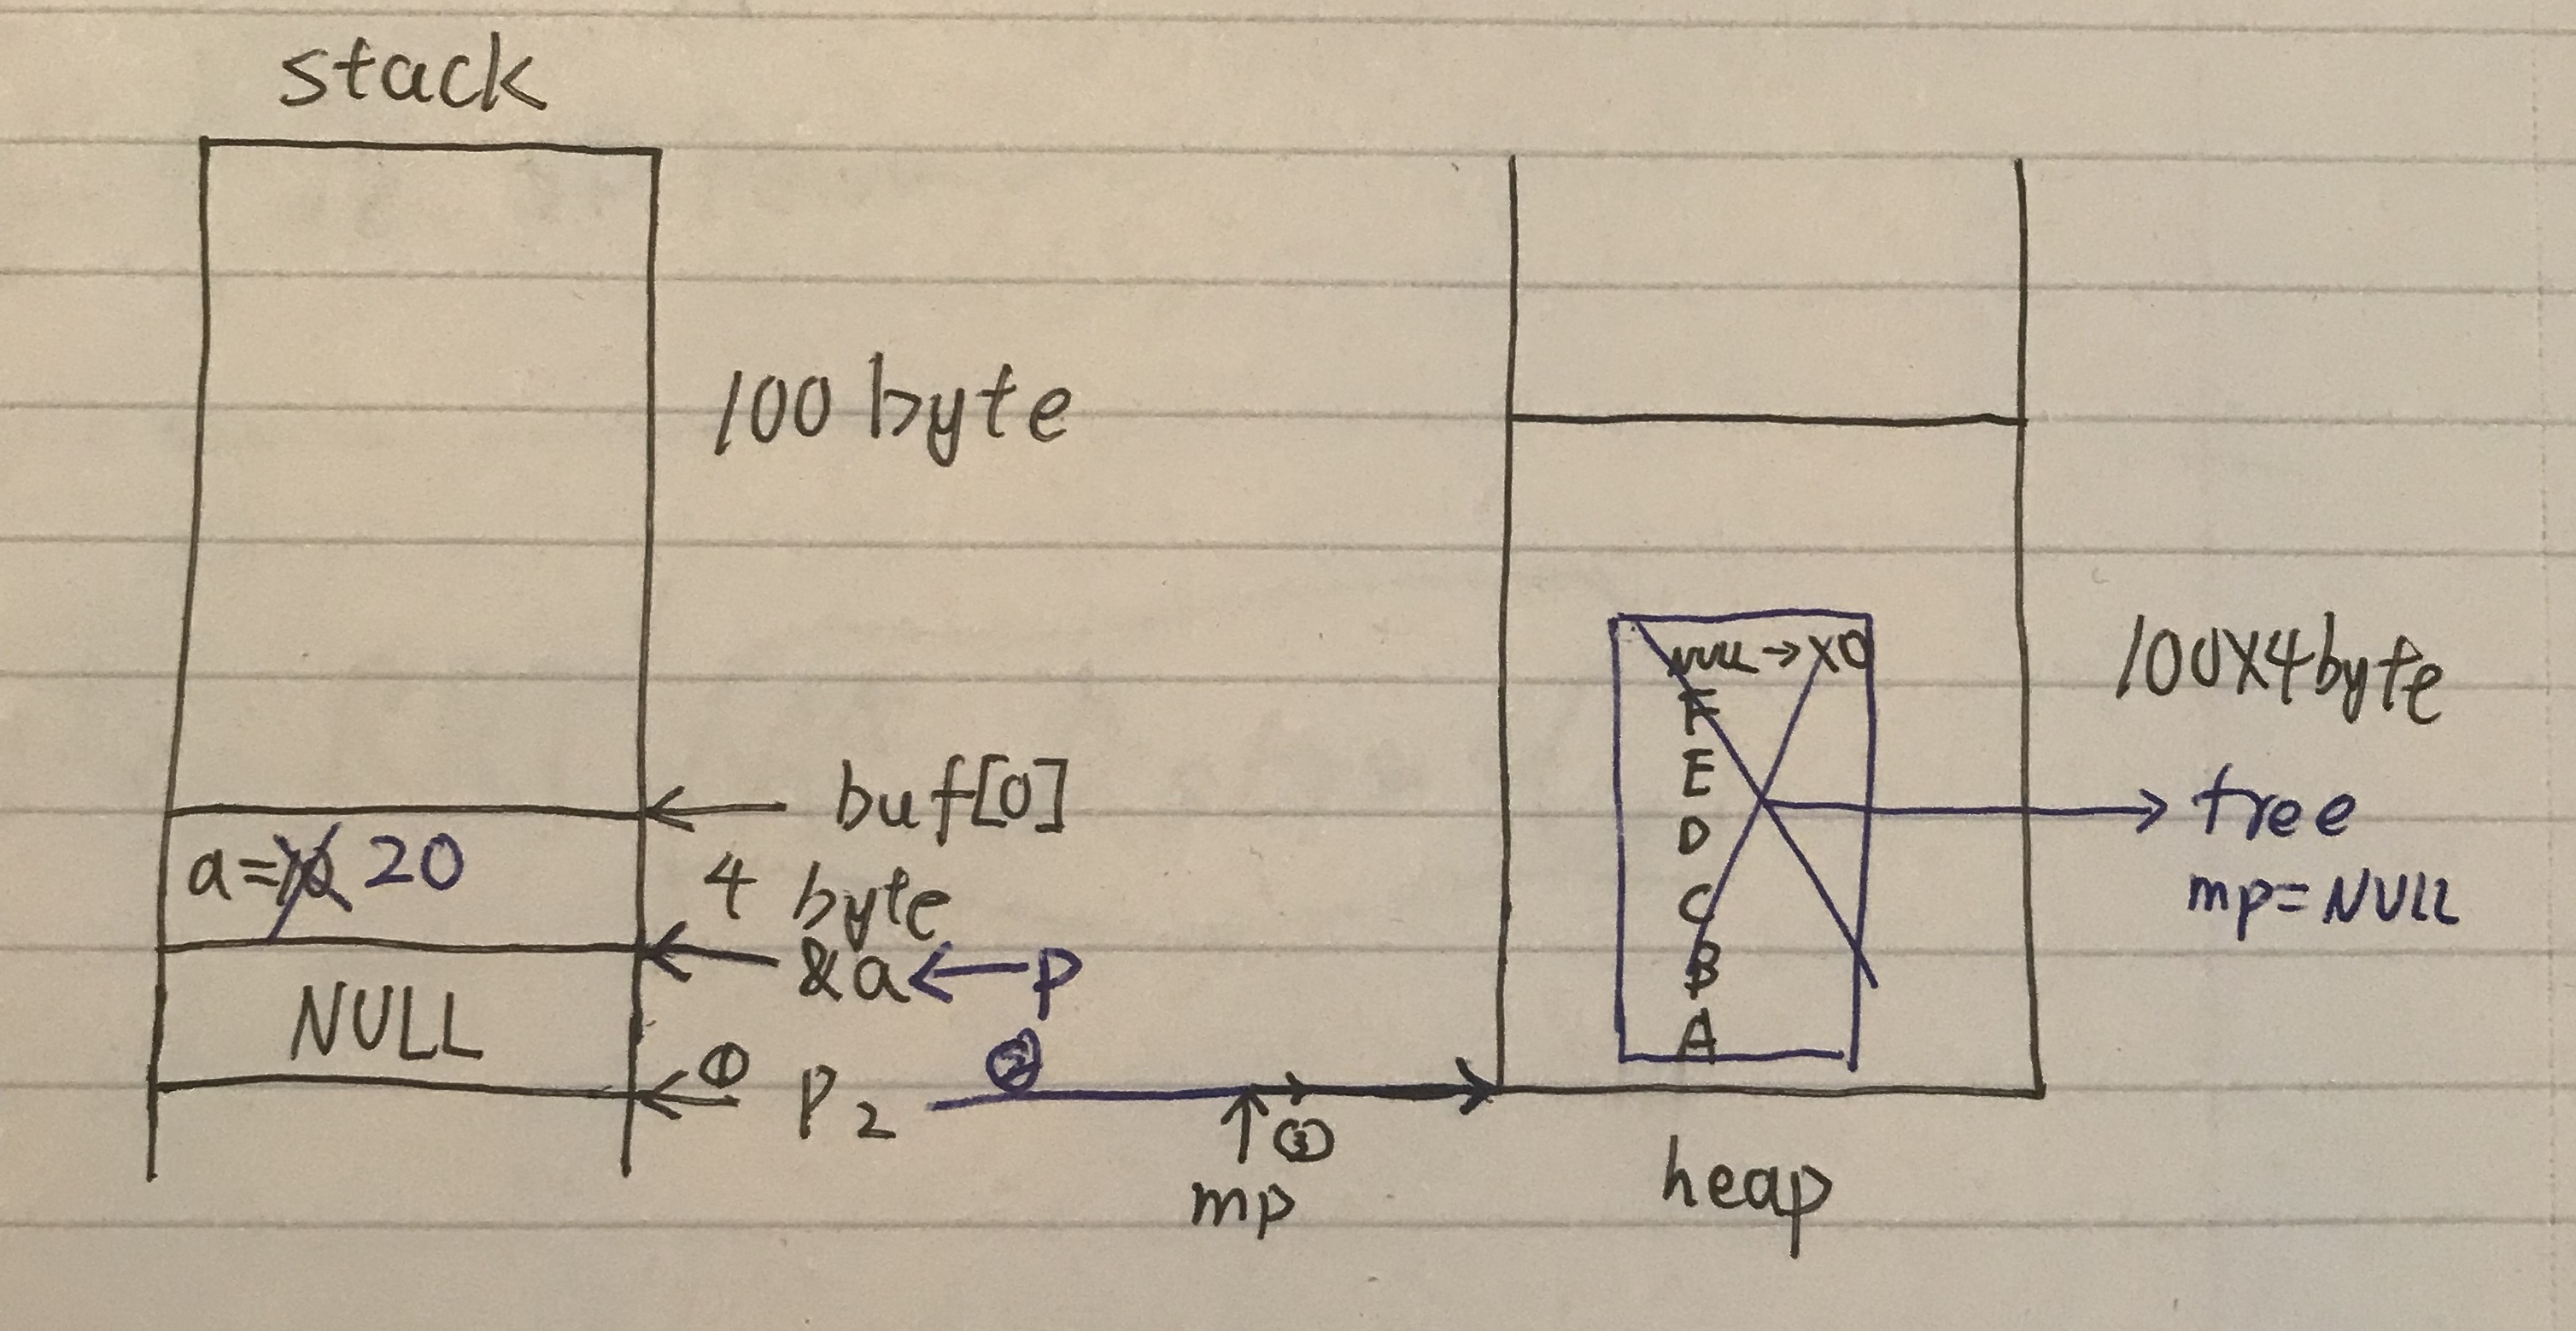 stack
100 byte
buf[0]
a=10 20
4 byte
&a ← P
NULL
① P2 ②
③
mp
→ X0
F
E
D
C
B
A
100X4byte
tree
mp=NULL
heap